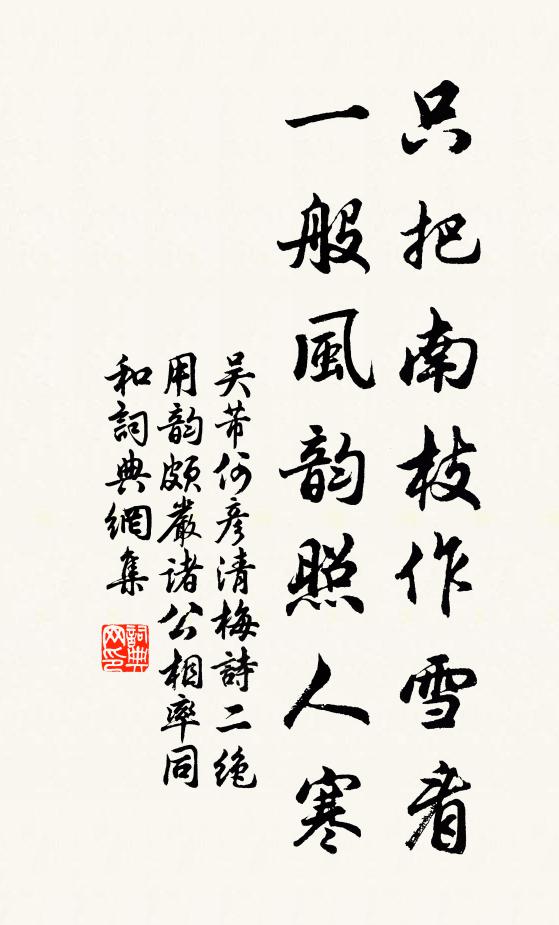 只把南枝作雪看
一般風韵照人寒
吴芾何彦清梅詩二绝
用韵頗嚴諸公相率同
和詞典網集
詞典
网印